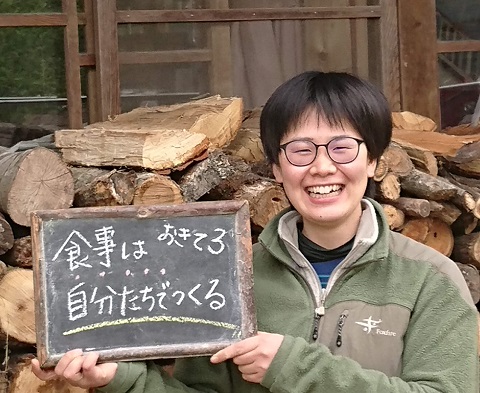 おきてる
食事は
自分たちでつくる
Foxfire